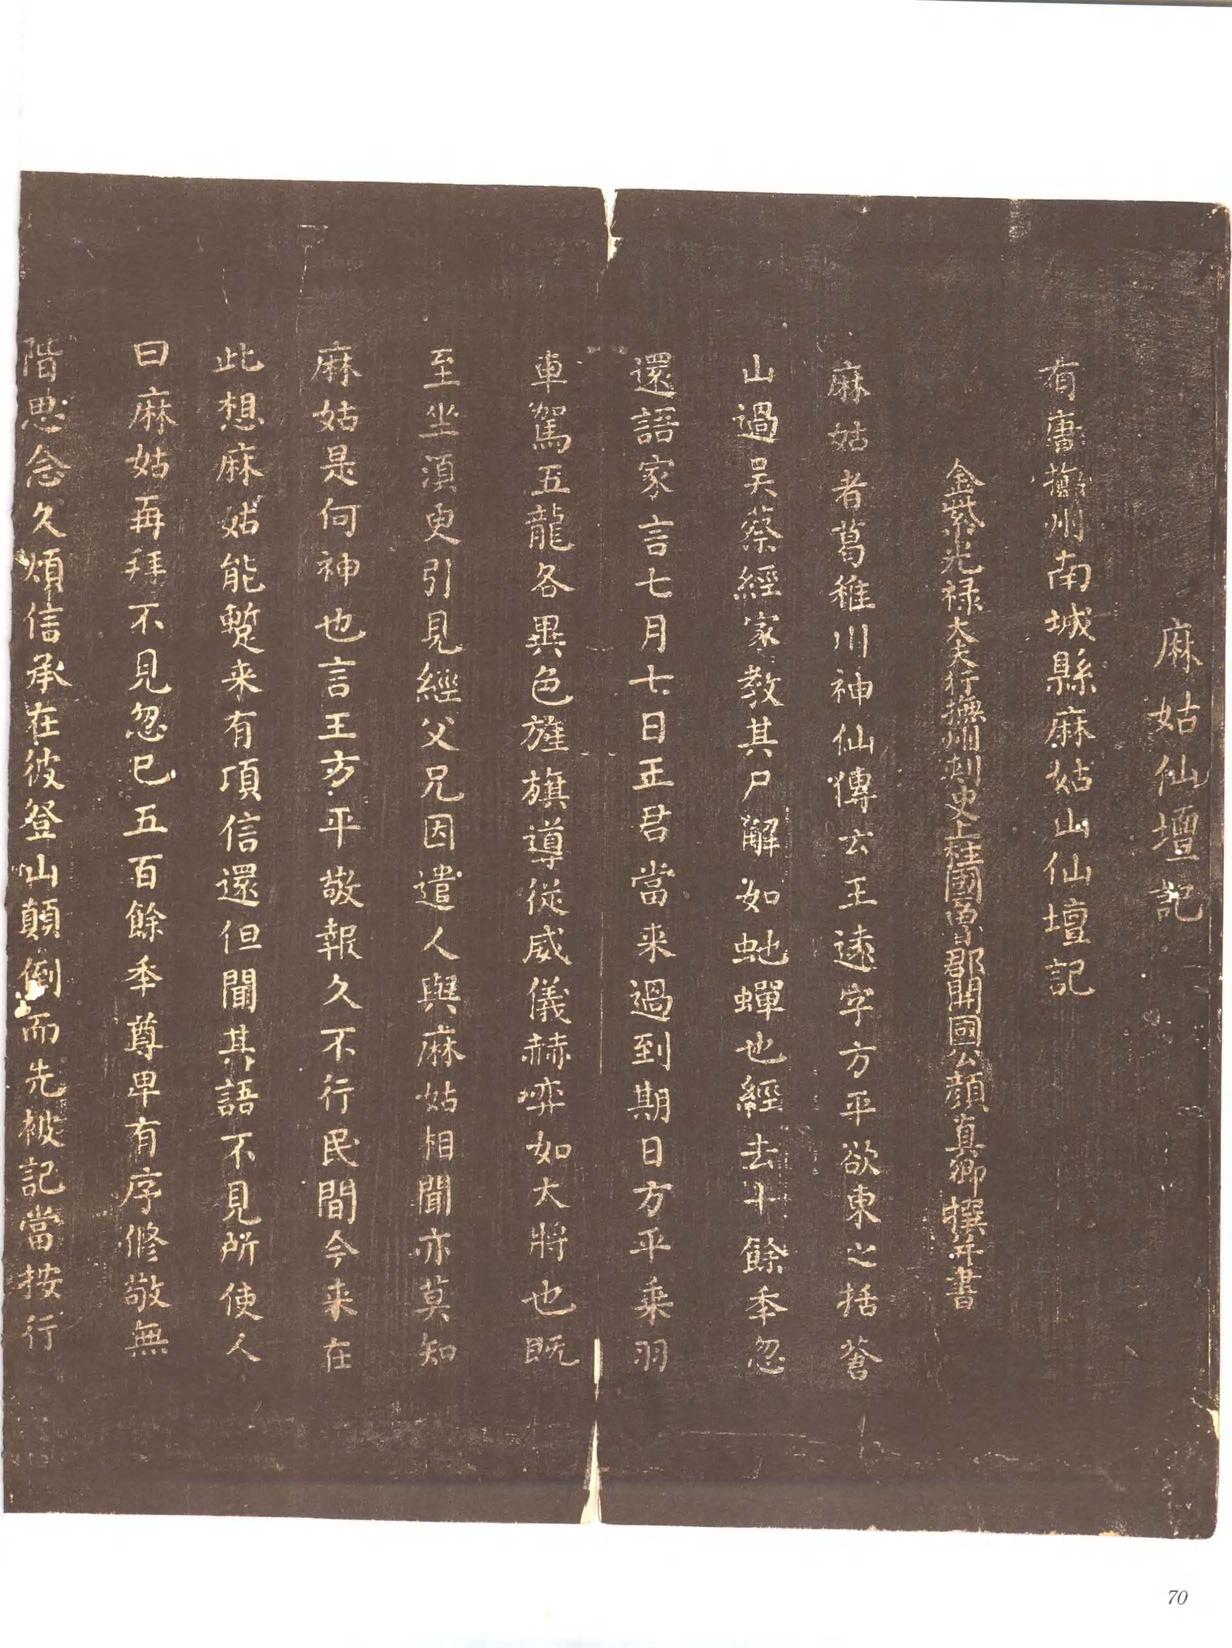 麻姑仙壇記
有唐撫州南城縣麻姑山仙壇記
金紫光禄大夫行撫州刺史上柱國魯郡開國公顏真卿撰并書
麻姑者葛稚川神仙傳云王遠字方平欲東之括蒼
山過吳蔡經家教其尸解如虵蟬也經去十餘年忽
還語家言七月七日王君當来過到期日方平乗羽
車駕五龍各異色旌旗導從威儀赫弈如大將也既
至坐須臾引見經父兄因遣人與麻姑相聞亦莫知
麻姑是何神也言王方平敬報久不行民間今来在
此想麻姑能蹔来有頃信還但聞其語不見所使人
曰麻姑再拜不見忽已五百餘年尊卑有序修敬無
階思念久煩信承在彼登山顛倒而先被記當按行
70